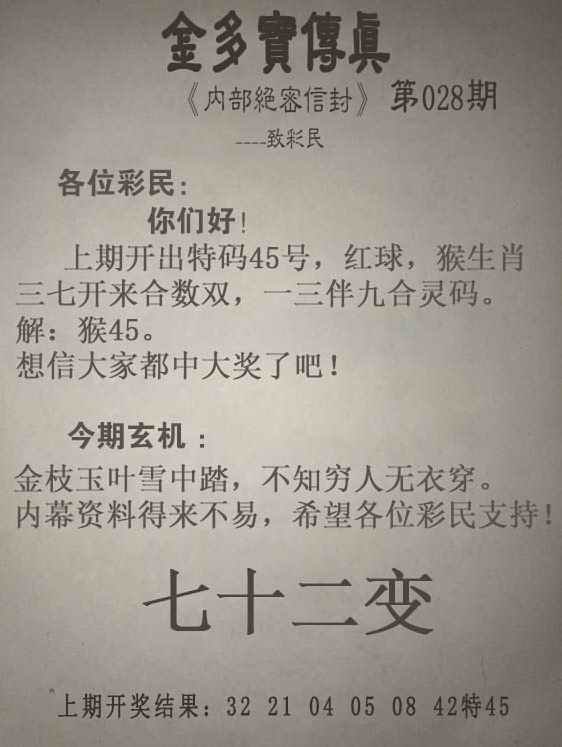 金多寳傳眞
《内部絕密信封》 第028期
----致彩民
各位彩民：
你们好！
上期开出特码45号，红球，猴生肖
三七开来合数双，一三伴九合灵码。
解：猴45。
想信大家都中大奖了吧！
今期玄机：
金枝玉叶雪中踏，不知穷人无衣穿。
内幕资料得来不易，希望各位彩民支持！
七十二变
上期开奖结果：32 21 04 05 08 42特45